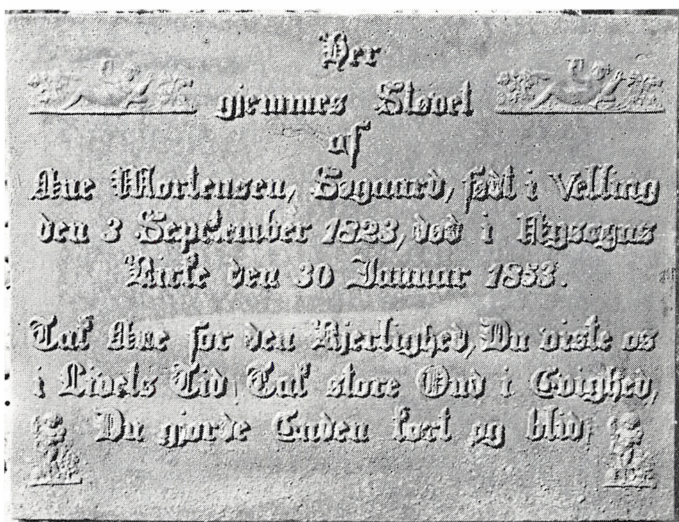 Her
gjemmes Støvet
af
Ane Mortensen, Søgaard, født i Velling
den 3 September 1823, død i Nysogns
Kirke den 30 Januar 1853.
Tak Ane for den Kjerlighed, Du viste os
i Livets Tid, Tak store Gud i Evighed,
Du gjorde Enden kort og blid,